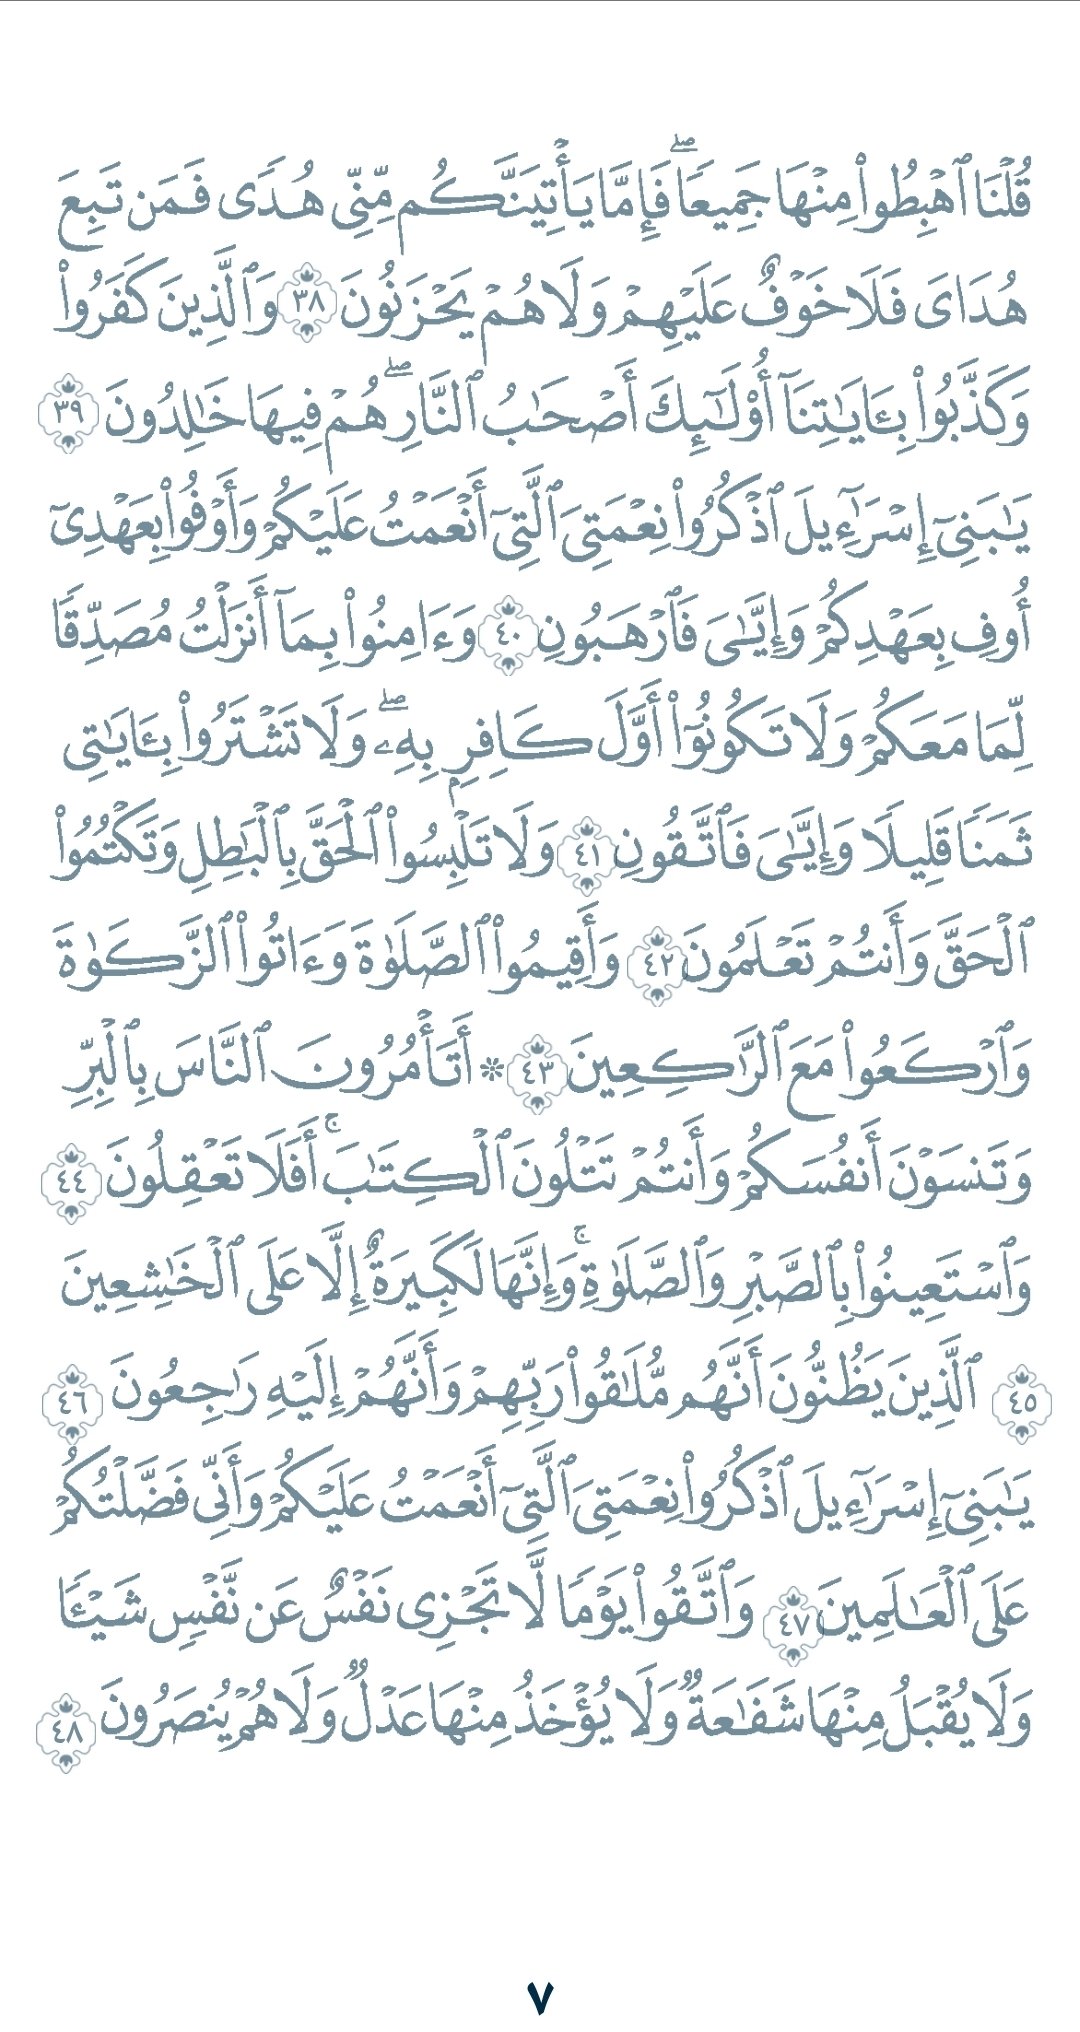 قُلۡنَا ٱهۡبِطُواْ مِنۡهَا جَمِيعٗاۖ فَإِمَّا يَأۡتِيَنَّكُم مِّنِّي هُدٗى فَمَن تَبِعَ
هُدَايَ فَلَا خَوۡفٌ عَلَيۡهِمۡ وَلَا هُمۡ يَحۡزَنُونَ ٣٨ وَٱلَّذِينَ كَفَرُواْ
وَكَذَّبُواْ بِـَٔايَٰتِنَآ أُوْلَٰٓئِكَ أَصۡحَٰبُ ٱلنَّارِۖ هُمۡ فِيهَا خَٰلِدُونَ ٣٩
يَٰبَنِيٓ إِسۡرَٰٓءِيلَ ٱذۡكُرُواْ نِعۡمَتِيَ ٱلَّتِيٓ أَنۡعَمۡتُ عَلَيۡكُمۡ وَأَوۡفُواْ بِعَهۡدِيٓ
أُوفِ بِعَهۡدِكُمۡ وَإِيَّٰيَ فَٱرۡهَبُونِ ٤٠ وَءَامِنُواْ بِمَآ أَنزَلۡتُ مُصَدِّقٗا
لِّمَا مَعَكُمۡ وَلَا تَكُونُوٓاْ أَوَّلَ كَافِرِۭ بِهِۦۖ وَلَا تَشۡتَرُواْ بِـَٔايَٰتِي
ثَمَنٗا قَلِيلٗا وَإِيَّٰيَ فَٱتَّقُونِ ٤١ وَلَا تَلۡبِسُواْ ٱلۡحَقَّ بِٱلۡبَٰطِلِ وَتَكۡتُمُواْ
ٱلۡحَقَّ وَأَنتُمۡ تَعۡلَمُونَ ٤٢ وَأَقِيمُواْ ٱلصَّلَوٰةَ وَءَاتُواْ ٱلزَّكَوٰةَ
وَٱرۡكَعُواْ مَعَ ٱلرَّٰكِعِينَ ٤٣ ۞ أَتَأۡمُرُونَ ٱلنَّاسَ بِٱلۡبِرِّ
وَتَنسَوۡنَ أَنفُسَكُمۡ وَأَنتُمۡ تَتۡلُونَ ٱلۡكِتَٰبَۚ أَفَلَا تَعۡقِلُونَ ٤٤
وَٱسۡتَعِينُواْ بِٱلصَّبۡرِ وَٱلصَّلَوٰةِۚ وَإِنَّهَا لَكَبِيرَةٌ إِلَّا عَلَى ٱلۡخَٰشِعِينَ
٤٥ ٱلَّذِينَ يَظُنُّونَ أَنَّهُم مُّلَٰقُواْ رَبِّهِمۡ وَأَنَّهُمۡ إِلَيۡهِ رَٰجِعُونَ ٤٦
يَٰبَنِيٓ إِسۡرَٰٓءِيلَ ٱذۡكُرُواْ نِعۡمَتِيَ ٱلَّتِيٓ أَنۡعَمۡتُ عَلَيۡكُمۡ وَأَنِّي فَضَّلۡتُكُمۡ
عَلَى ٱلۡعَٰلَمِينَ ٤٧ وَٱتَّقُواْ يَوۡمٗا لَّا تَجۡزِي نَفۡسٌ عَن نَّفۡسٖ شَيۡـٔٗا
وَلَا يُقۡبَلُ مِنۡهَا شَفَٰعَةٞ وَلَا يُؤۡخَذُ مِنۡهَا عَدۡلٞ وَلَا هُمۡ يُنصَرُونَ ٤٨
٧